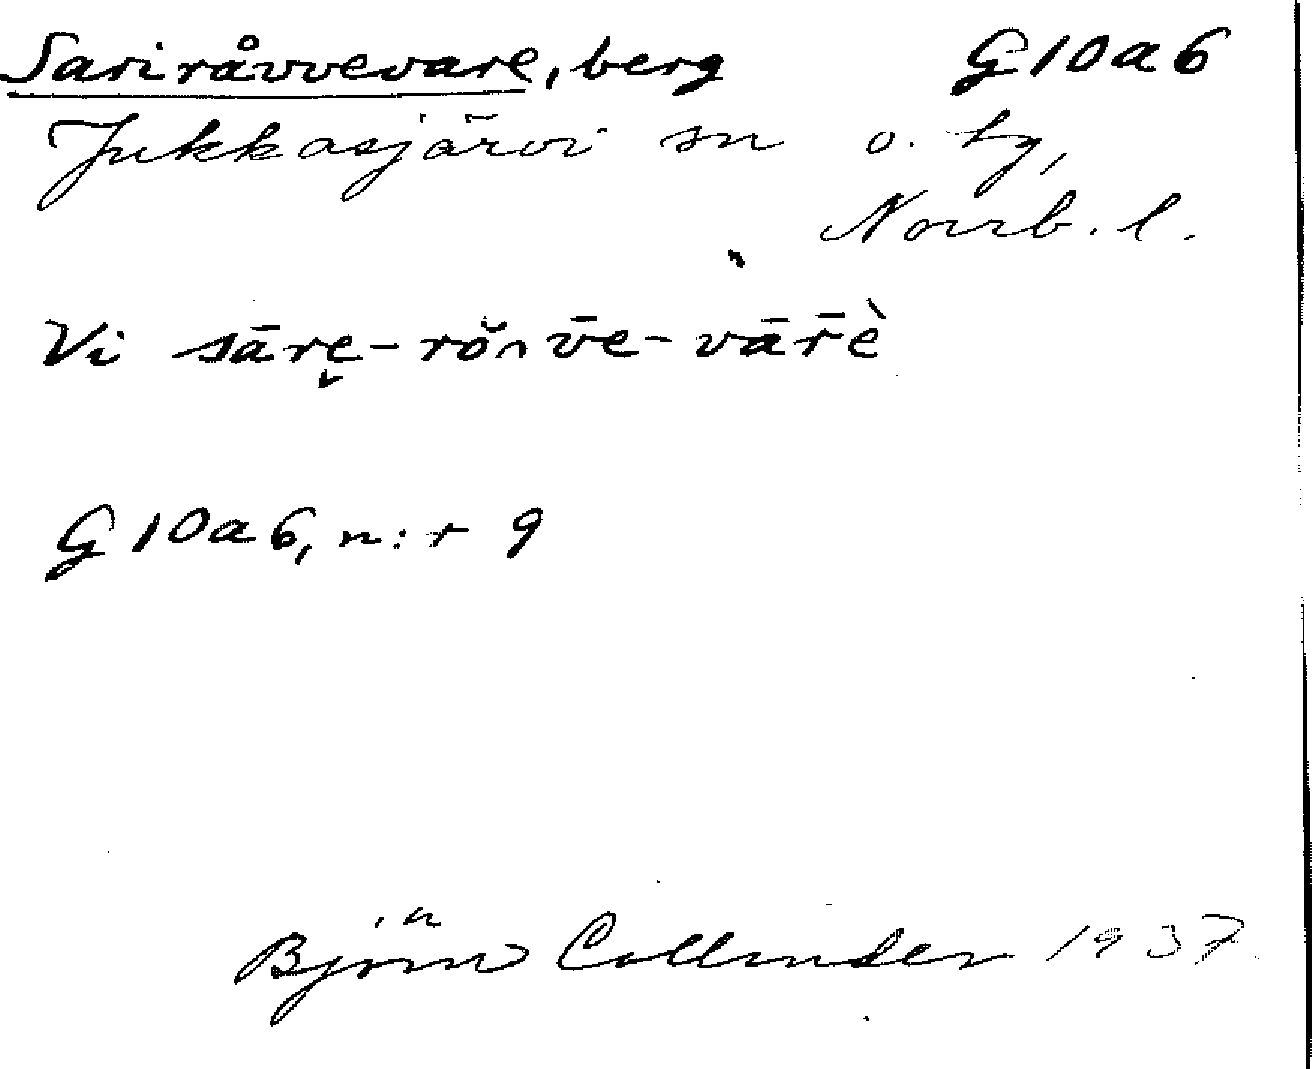 Sariråvvevare, berg G10a6
Jukkasjärvi sn o. tg,
Norrb. l.
Vi sāre̬-rŏ̀∩v̄e-vār̄è
G10a6, n:r 9
Björn Collinder 1937.